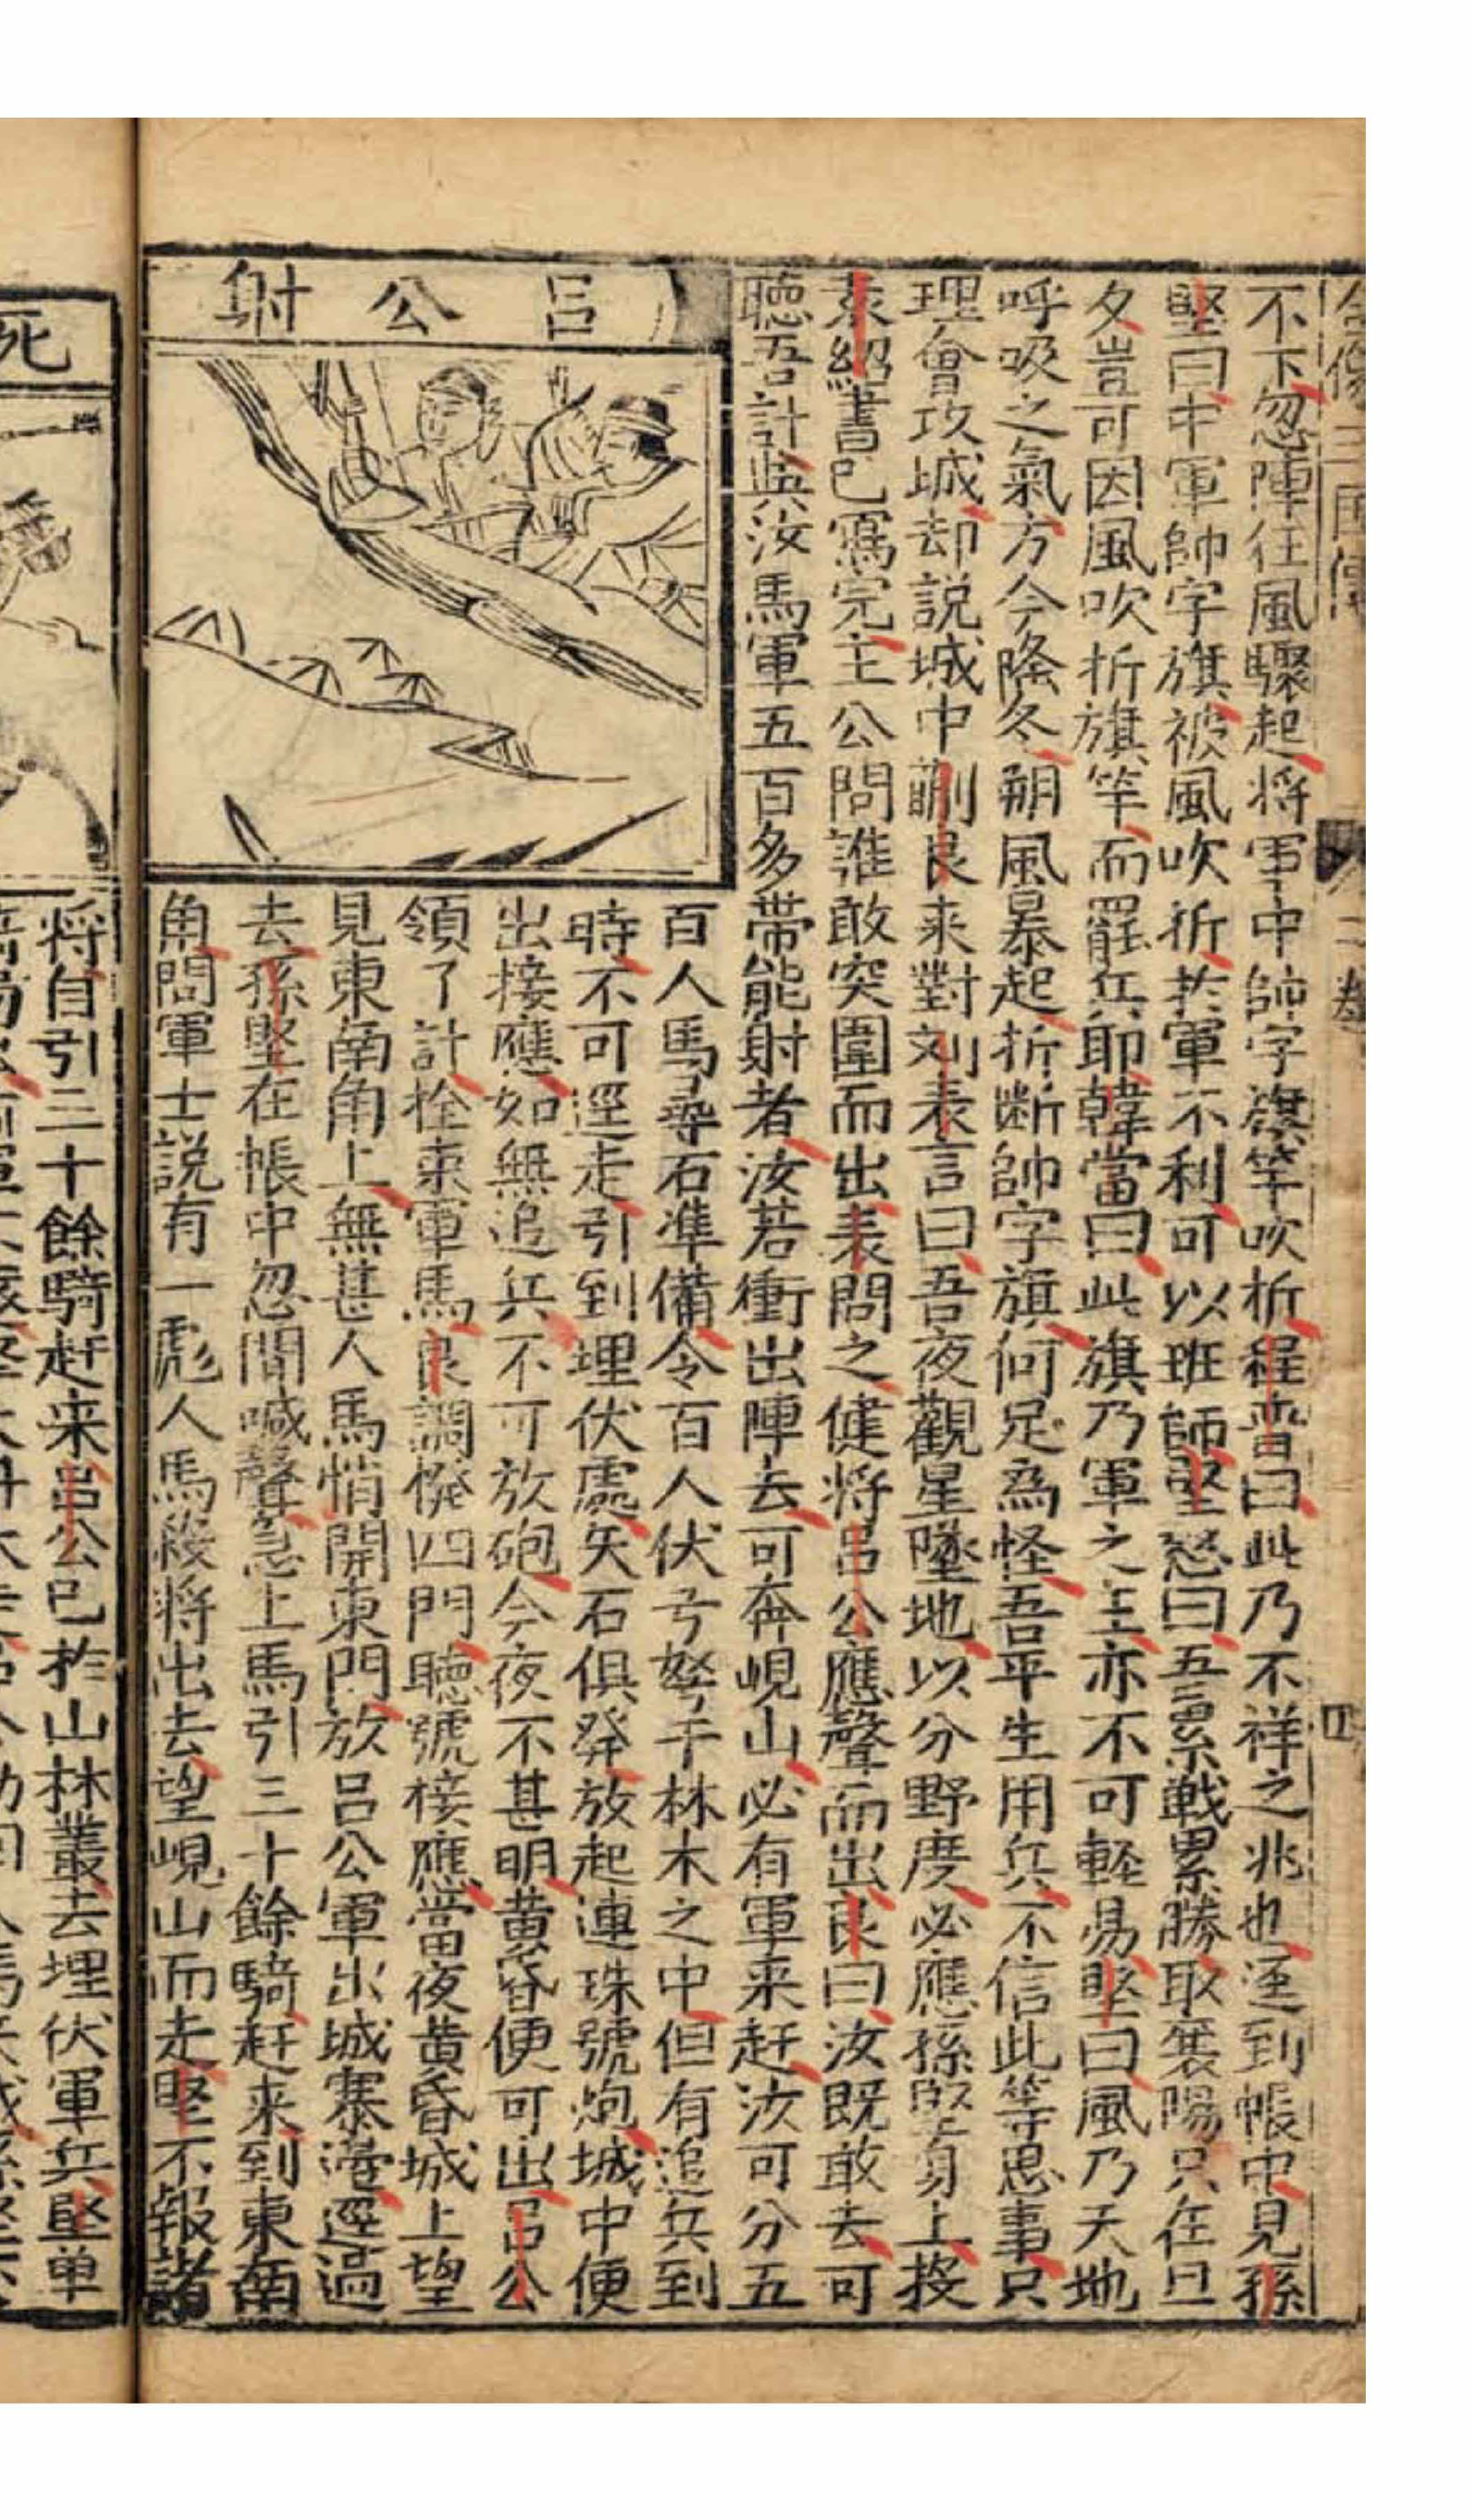 全像三国傳
二卷
四
不下忽陣狂風驟起将軍中帥字旗竿吹折程普曰此乃不祥之兆也逕到帳中見孫
堅曰中軍帥字旗被風吹折扵軍不利可以班師堅怒曰吾累戦累勝取襄陽只在旦
夕豈可因風吹折旗竿而罷兵耶韓當曰此旗乃軍之主亦不可輕易堅曰風乃天地
呼吸之氣方今隆冬朔風暴起折斷帥字旗何足為怪吾平生用兵不信此等思事只
理會攻城却説城中蒯良来對刘表言曰吾夜觀星墜地以分野度必應孫堅身上按
袁紹書已寫完主公問誰敢突圍而出表問之健将吕公應聲而出良曰汝既敢去可
聴吾計與汝馬軍五百多帶能射者汝若衝出陣去可奔峴山必有軍来赶汝可分五
吕公射
百人馬尋石准備令百人伏弓弩于林木之中但有追兵到
時不可逕走引到埋伏處矢石俱發放起連珠號炮城中便
出接應如無追兵不可放砲今夜不甚明黄昏便可出吕公
領了計拴束軍馬良調撥四門聴號接應當夜黄昏城上望
見東南角上無甚人馬悄開東門放吕公軍出城寨邊逕過
去孫堅在帳中忽聞喊聲急上馬引三十餘騎赶来到東南
角問軍士説有一彪人馬殺将出去望峴山而走堅不報諸
死
将自引三十餘騎赶来吕公已扵山林叢去埋伏軍兵堅单